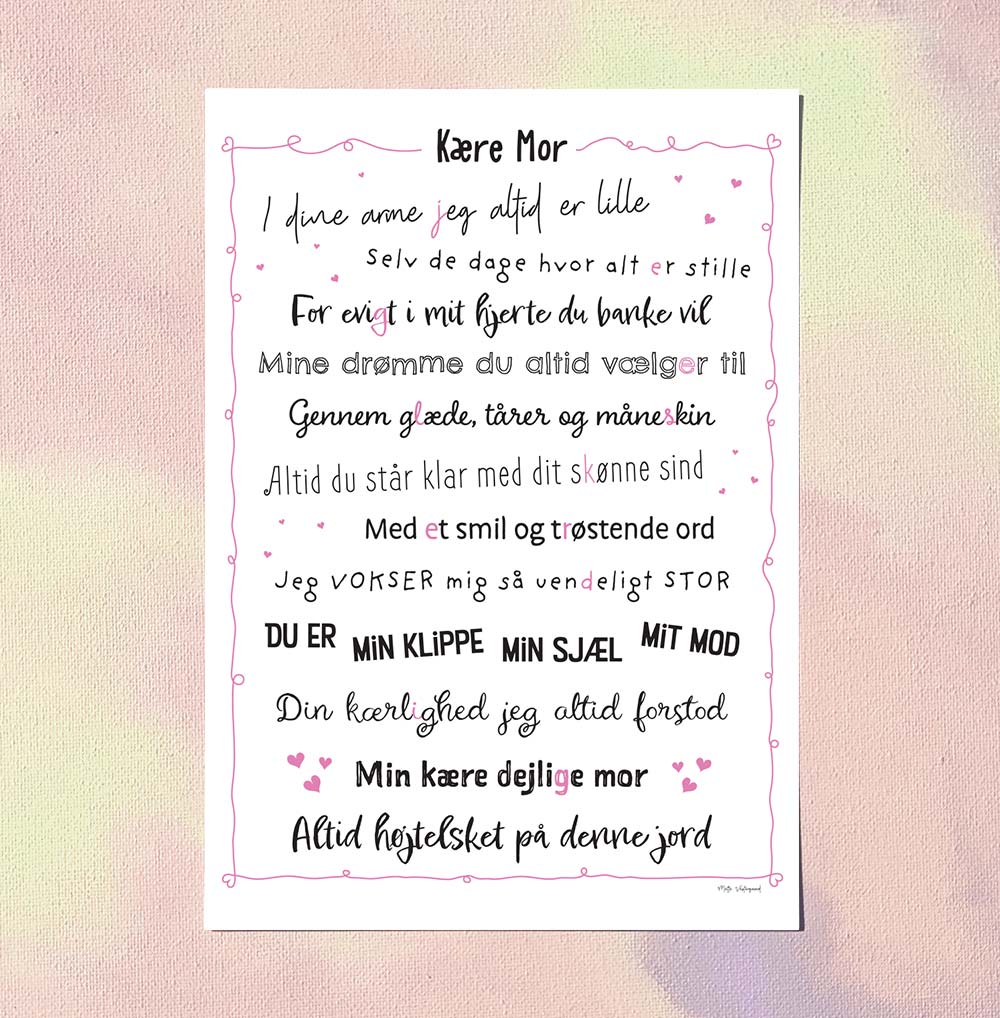 Kære Mor
I dine arme jeg altid er lille
Selv de dage hvor alt er stille
For evigt i mit hjerte du banke vil
Mine drømme du altid vælger til
Gennem glæde, tårer og måneskin
Altid du står klar med dit skønne sind
Med et smil og trøstende ord
Jeg VOKSER mig så uendeligt STOR
DU ER MiN KLiPPE MiN SJÆL MiT MOD
Din kærlighed jeg altid forstod
Min kære dejlige mor
Altid højtelsket på denne jord